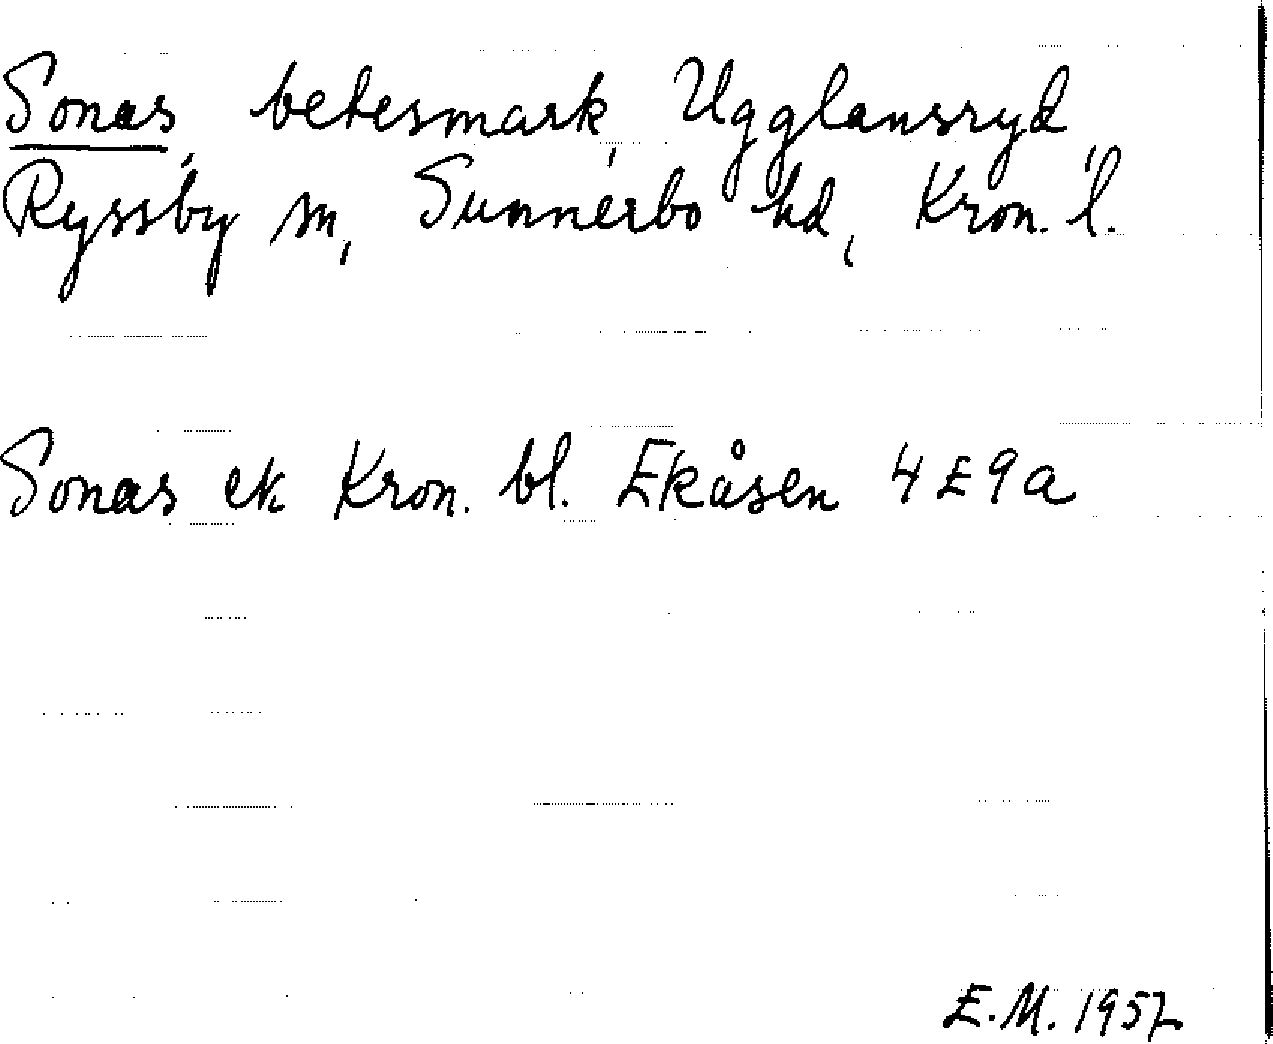 Sonas, betesmark, Ugglansryd,
Ryssby sn, Sunnerbo hd, Kron. l.
Sonas ek Kron. bl. Ekåsen 4E9a
E.M. 1957